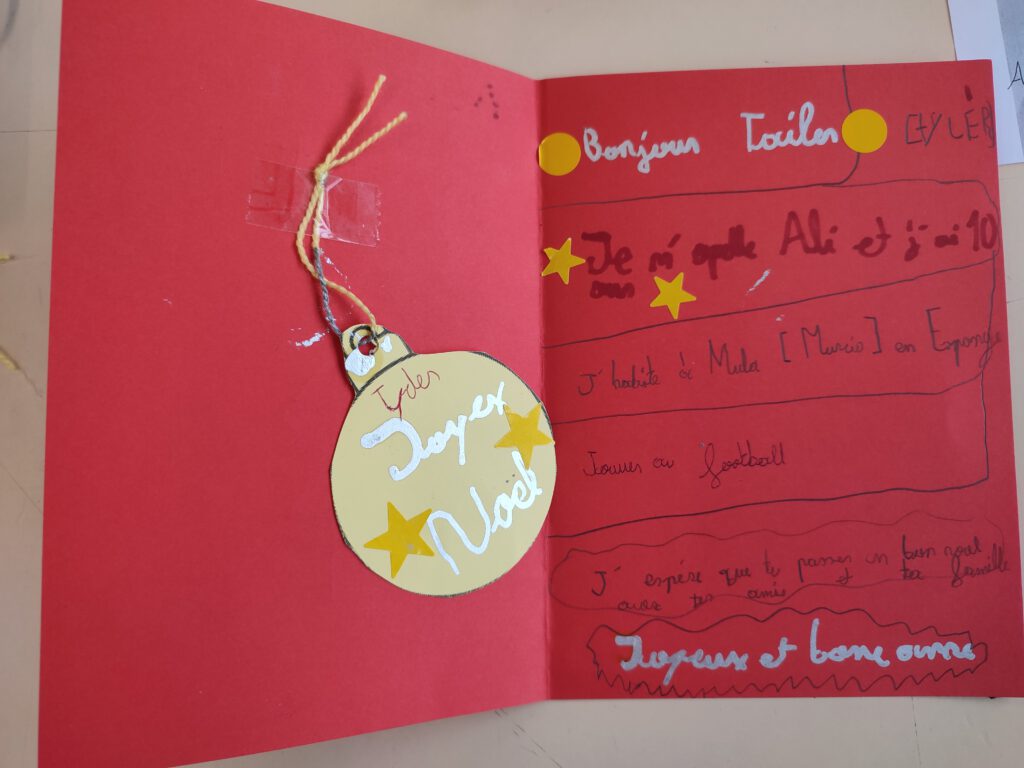 Joyex
Noël
Bonjour Tailer
Je m'apelle Ali et j'ai 10
ans
J'habite à Mula [Murcio] en Espongle
Jouer au football
J'espére que tu passes un bon noul
avec tes amis et ta famille
Joyeux et bone anne